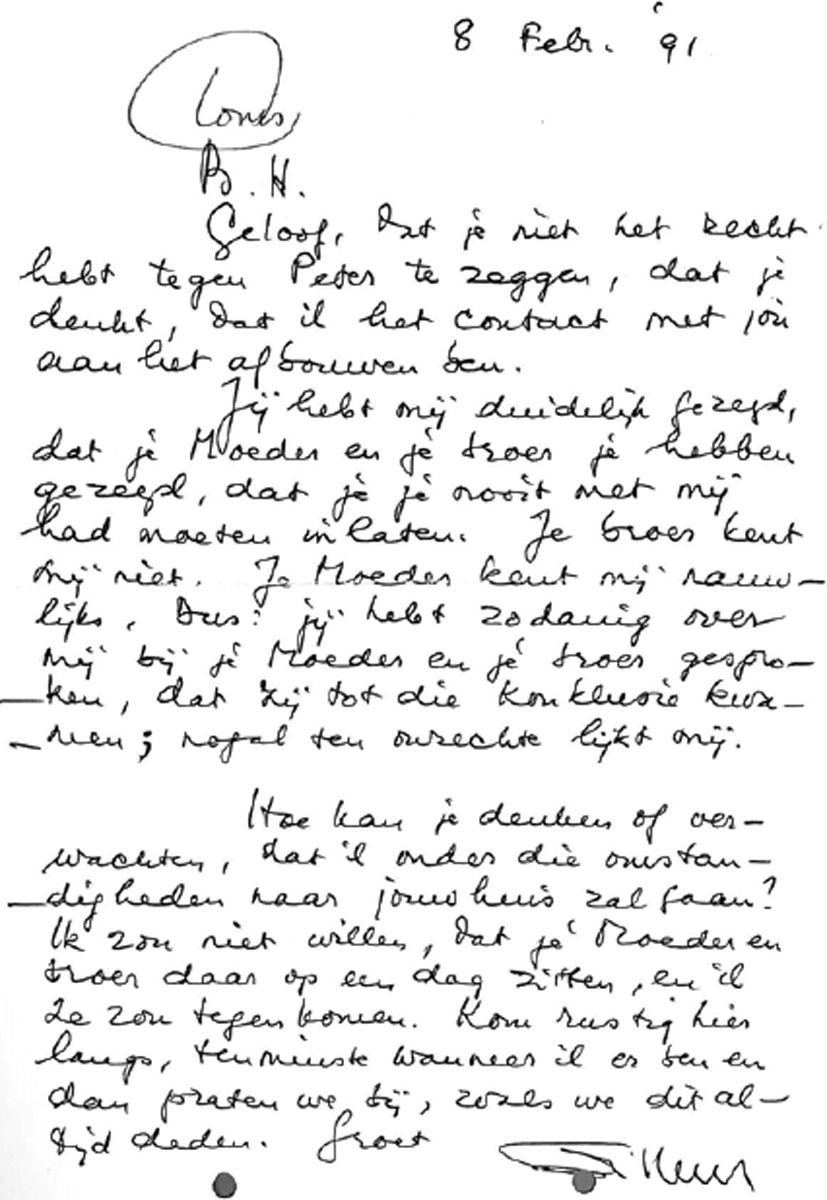 8 Febr. '91
B.H.
Geloof, dat je niet het recht
hebt tegen Peter te zeggen, dat je
denkt, dat ik het contact met jou
aan het afbouwen ben.
Jij hebt mij duidelijk gezegd,
dat je Moeder en je broer je hebben
gezegd, dat je je nooit met mij
had moeten inlaten. Je broer kent
mij niet. Je Moeder kent mij nauw-
lijks. Dus: jij hebt zodanig over
mij bij je Moeder en je broer gespro-
-ken, dat zij tot die konklusie kwa-
-men; nogal ten onrechte lijkt mij.
Hoe kan je denken of ver-
wachten, dat ik onder die omstan-
-digheden naar jouw huis zal gaan?
Ik zou niet willen, dat je Moeder en
broer daar op een dag zitten, en ik
ze zou tegenkomen. Kom rustig hier
langs, tenminste wanneer ik er ben en
dan praten we bij, zoals we dit al-
tijd deden. Groet